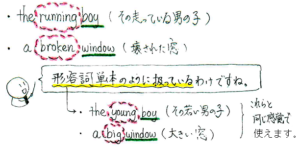 ・the running boy (その走っている男の子)
・a broken window (壊された窓)
形容詞単体のように扱っているわけですね。
・the young boy (その若い男の子)
・a big window (大きい窓)
これらと
同じ感覚で
使えます。